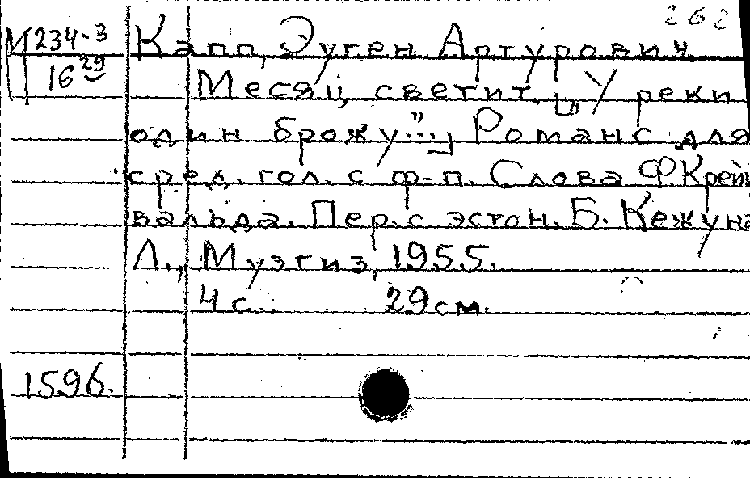 262
М 234-3 Капп, Эуген Артурович
16 29 Месяц светит. [„У реки
один брожу"...] Романс для
сред. гол. с ф-п. Слова Ф Крейц
вальда. Пер. с эстон. Б. Кежуна
Л., Музгиз, 1955.
4 с. 29 см.
1596.